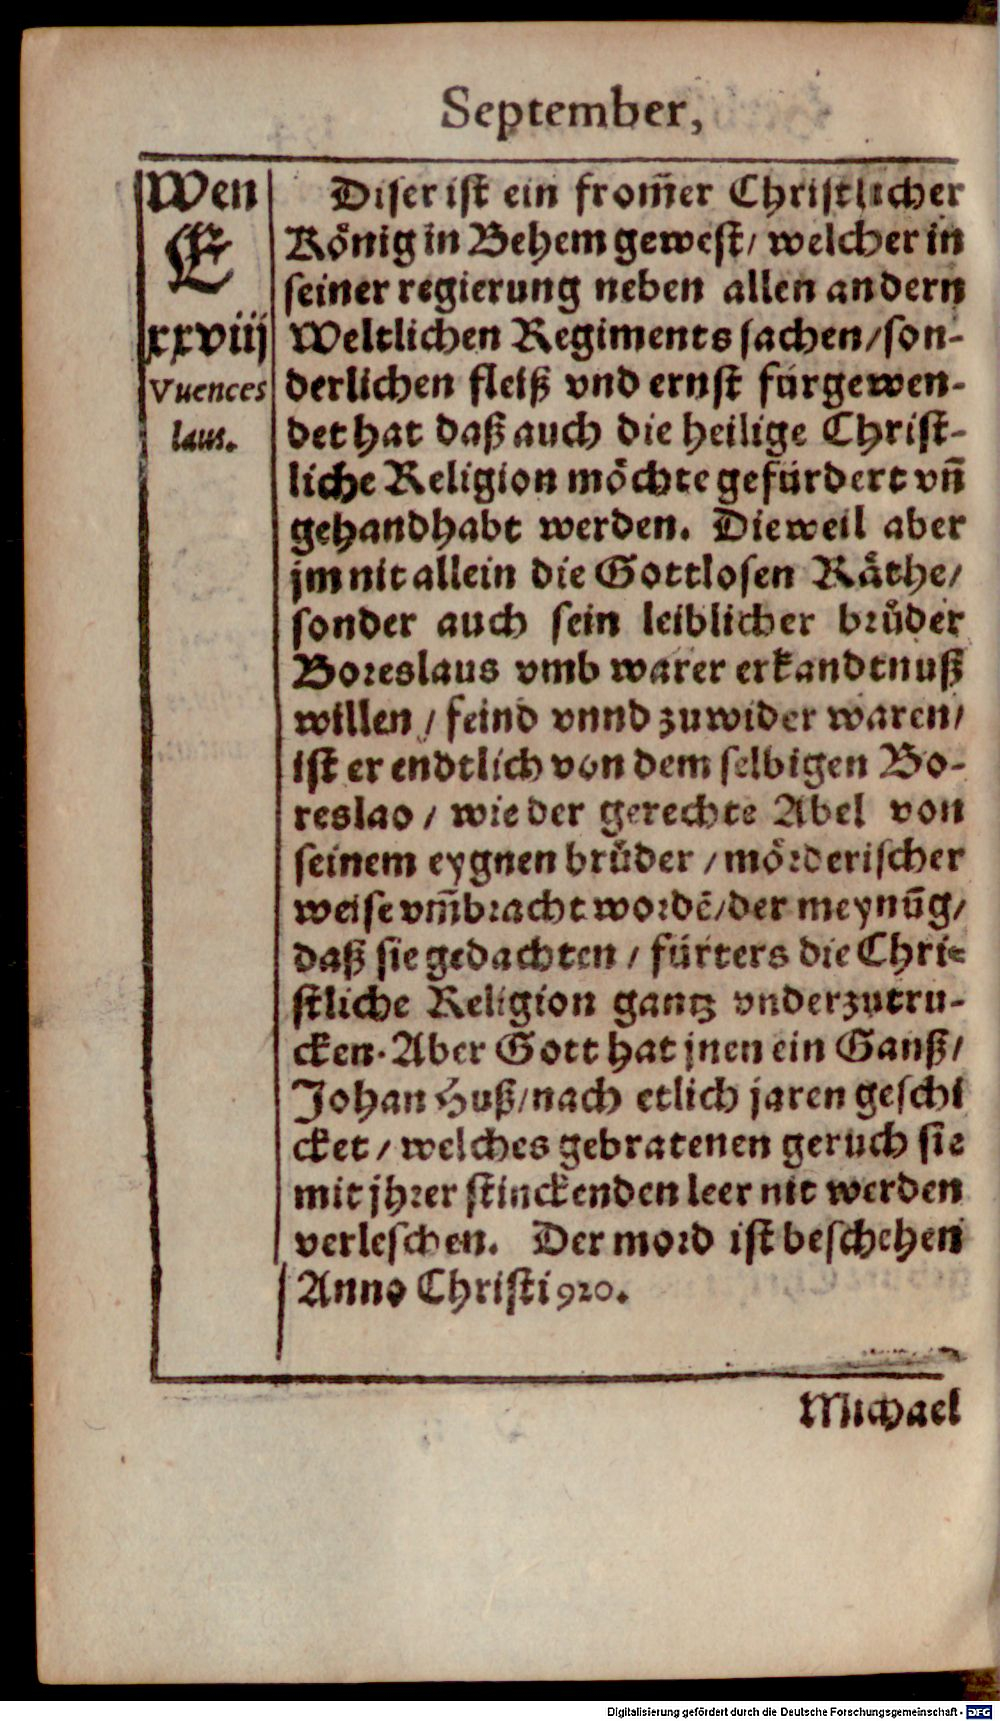 September,
Wen
E
xxviij
Vuences
laus.
Diser ist ein from̅er Christlicher
König in Behem gewest/ welcher in
seiner regierung neben allen andern
Weltlichen Regiments sachen/son-
derlichen fleiß vnd ernst fürgewen-
det hat daß auch die heilige Christ-
liche Religion möchte gefürdert vn̅
gehandhabt werden. Dieweil aber
jm nit allein die Gottlosen Räthe/
sonder auch sein leiblicher brůder
Boreslaus vmb warer erkandtnuß
willen / feind vnnd zuwider waren/
ist er endtlich von dem selbigen Bo-
reslao / wie der gerechte Abel von
seinem eygnen brůder / mörderischer
weise vm̅bracht wordē/der meynūg/
daß sie gedachten / fürters die Chri-
stliche Religion gantz vnderzutru-
cken. Aber Gott hat jnen ein Ganß/
Johan Huß/nach etlich jaren geschi
cket / welches gebratenen geruch sie
mit jhrer stinckenden leer nit werden
verleschen. Der mord ist beschehen
Anno Christi 920.
Michael
Digitalisierung gefördert durch die Deutsche Forschungsgemeinschaft - DFG